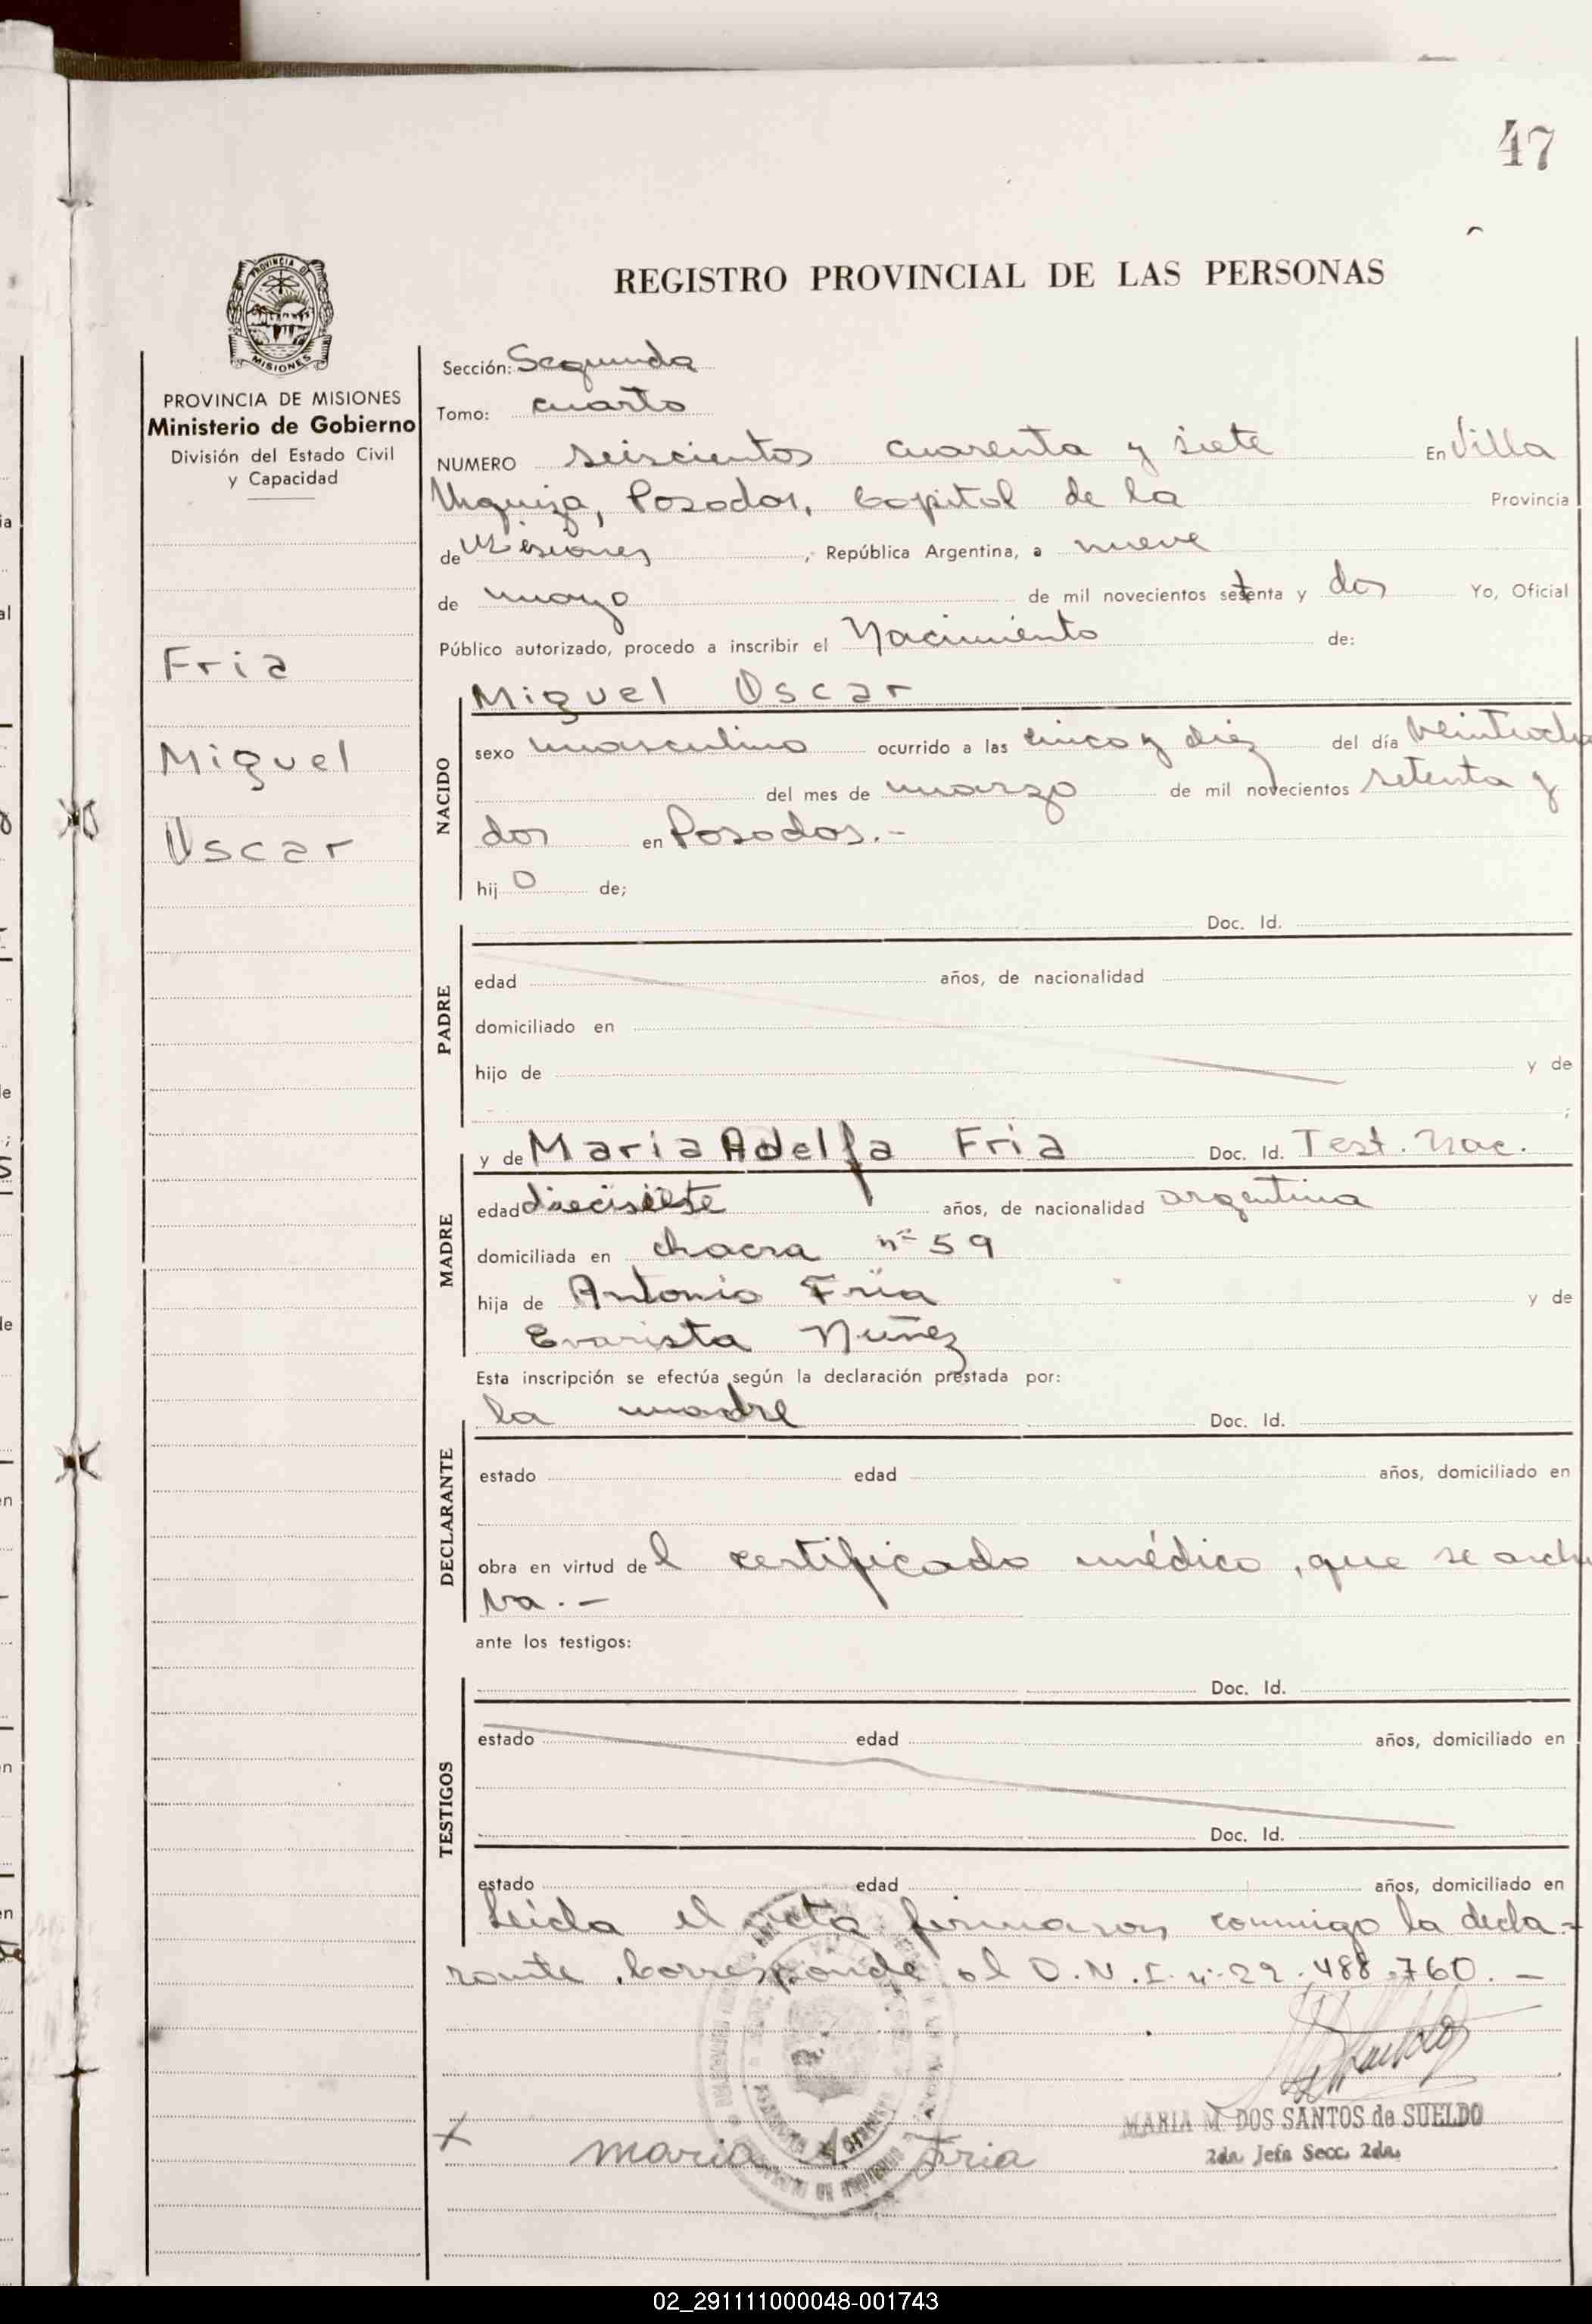 47
REGISTRO PROVINCIAL DE LAS PERSONAS
PROVINCIA DE MISIONES
Ministerio de Gobierno
División del Estado Civil
y Capacidad
Fria
Miguel
Oscar
Sección: Segunda
Tomo: cuarto
NUMERO seiscientos cuarenta y siete En Villa
Urquiza, Posadas, Capital de la Provincia
de Misiones, República Argentina, a nueve
de mayo de mil novecientos setenta y dos Yo, Oficial
Público autorizado, procedo a inscribir el Nacimiento de:
NACIDO
Miguel Oscar
sexo masculino ocurrido a las cinco y diez del día veintiocho
del mes de marzo de mil novecientos setenta y
dos en Posadas.-
hijo de;
PADRE
Doc. Id.
edad años, de nacionalidad
domiciliado en
hijo de y de
;
MADRE
y de Maria Adelfa Fria Doc. Id. Test. Nac.
edad diecisiete años, de nacionalidad argentina
domiciliada en chacra nº 59
hija de Antonio Fria y de
Evarista Nuñez
Esta inscripción se efectúa según la declaración prestada por:
DECLARANTE
la madre Doc. Id.
estado edad años, domiciliado en
obra en virtud del certificado médico, que se archi
va.-
ante los testigos:
TESTIGOS
Doc. Id.
estado edad años, domiciliado en
Doc. Id.
estado edad años, domiciliado en
Leída el acta firmaron conmigo la decla-
rante. Corresponde al D.N.I. nº 22.488.760.-
MARIA M. DOS SANTOS de SUELDO
2da. Jefa Secc. 2da.
x maria A Fria
02_291111000048-001743